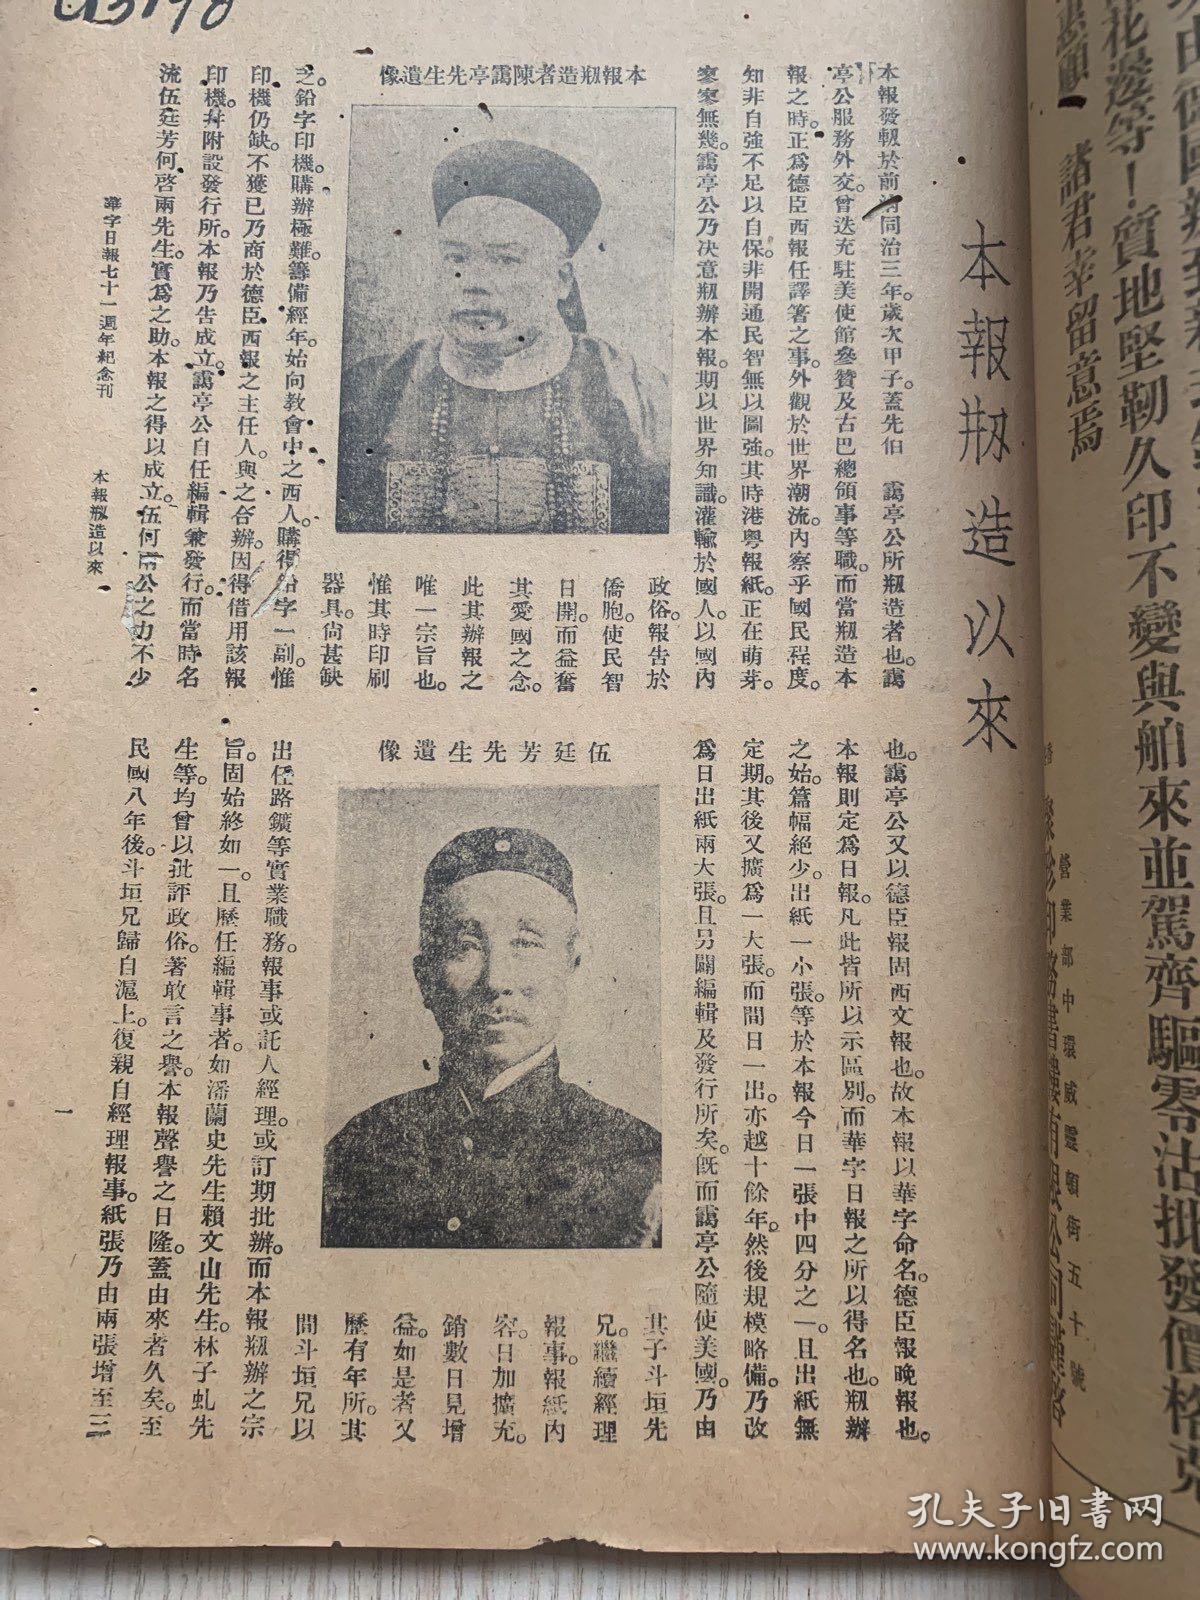 本報剏造以來
本報發軔於前清同治三年。歲次甲子。蓋先伯　靄亭公所剏造者也。靄
亭公服務外交。曾迭充駐美使館參贊及古巴總領事等職。而當剏造本
報之時。正為德臣西報任譯箸之事。外觀於世界潮流。內察乎國民程度。
知非自強不足以自保。非開通民智無以圖強。其時港粵報紙。正在萌芽。
寥寥無幾。靄亭公乃决意剏辦本報。期以世界知識。灌輸於國人。以國內
本報剏造者陳靄亭先生遺像
政俗。報告於
僑胞。使民智
日開。而益奮
其愛國之念。
此其辦報之
唯一宗旨也。
惟其時印刷
器具。尙甚缺
乏。鉛字印機。購辦極難。籌備經年。始向教會中之西人。購得鉛字一副。惟
印機仍缺。不獲已乃商於德臣西報之主任人。與之合辦。因得借用該報
印機。幷附設發行所。本報乃告成立。靄亭公自任編輯兼發行。而當時名
流伍廷芳何啓兩先生。實爲之助。本報之得以成立。伍何兩公之力不少
也。靄亭公又以德臣報固西文報也。故本報以華字命名。德臣報晚報也。
本報則定爲日報。凡此皆所以示區別。而華字日報之所以得名也。剏辦
之始。篇幅絕少。出紙一小張。等於本報今日一張中四分之一。且出紙無
定期。其後又擴爲一大張。而間日一出。亦越十餘年。然後規模略備。乃改
爲日出紙兩大張。且另闢編輯及發行所矣。旣而靄亭公隨使美國。乃由
伍廷芳先生遺像
其子斗垣先
兄。繼續經理
報事。報紙內
容。日加擴充。
銷數日見增
益。如是者又
歷有年所。其
間斗垣兄以
出任路鑛等實業職務。報事或託人經理。或訂期批辦。而本報剏辦之宗
旨。固始終如一。且歷任編輯事者。如潘蘭史先生賴文山先生。林子虬先
生等。均曾以批評政俗。著敢言之譽。本報聲譽之日隆。蓋由來者久矣。至
民國八年後。斗垣兄歸自滬上。復親自經理報事。紙張乃由兩張增至三
華字日報七十一週年紀念刊
本報剏造以來
一
諸君幸留意焉
花邊等！質地堅韌久印不變與舶來並駕齊驅零沽批發價格
營業部中環威靈頓街五十號
孔夫子旧书网
www.kongfz.com